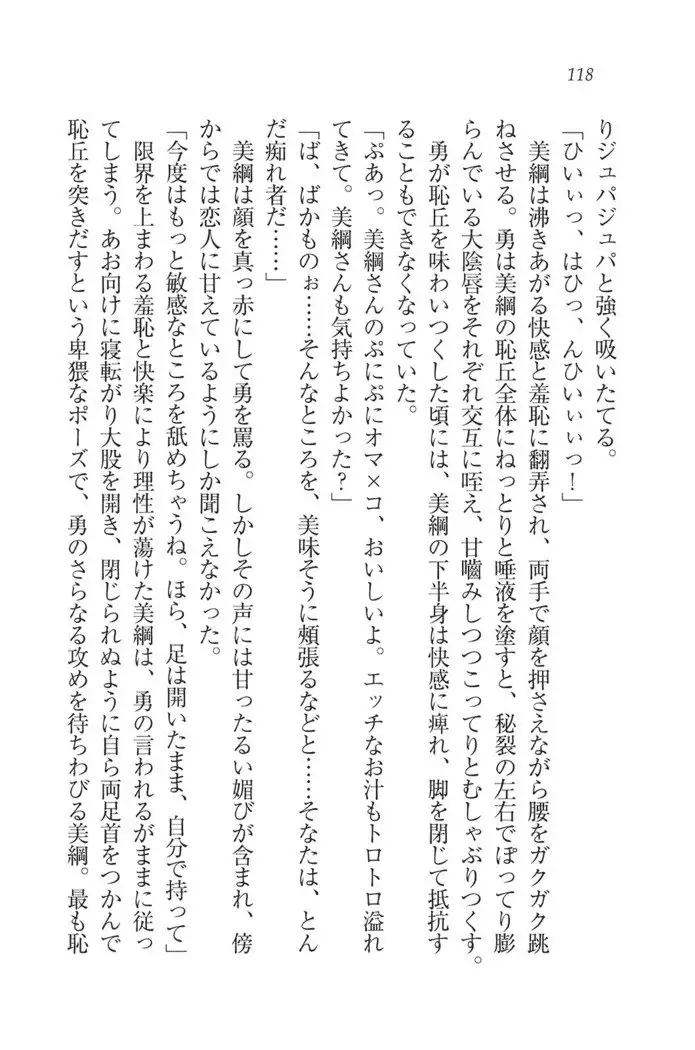 118
りジュパジュパと強く吸いたてる。
「ひいぃっ、はひっ、んひいぃぃっ！」
美綱は沸きあがる快感と羞恥に翻弄され、両手で顔を押さえながら腰をガクガク跳
ねさせる。勇は美綱の恥丘全体にねっとりと唾液を塗すと、秘裂の左右でぽってり膨
らんでいる大陰唇をそれぞれ交互に咥え、甘嚙みしつつこってりとむしゃぶりつくす。
勇が恥丘を味わいつくした頃には、美綱の下半身は快感に痺れ、脚を閉じて抵抗す
ることもできなくなっていた。
「ぷあっ。美綱さんのぷにぷにオマ×コ、おいしいよ。エッチなお汁もトロトロ溢れ
てきて。美綱さんも気持ちよかった？」
「ば、ばかものぉ……そんなところを、美味そうに頰張るなどと……そなたは、とん
だ痴れ者だ……」
美綱は顔を真っ赤にして勇を罵る。しかしその声には甘ったるい媚びが含まれ、傍
からでは恋人に甘えているようにしか聞こえなかった。
「今度はもっと敏感なところを舐めちゃうね。ほら、足は開いたまま、自分で持って」
限界を上まわる羞恥と快楽により理性が蕩けた美綱は、勇の言われるがままに従っ
てしまう。あお向けに寝転がり大股を開き、閉じられぬように自ら両足首をつかんで
恥丘を突きだすという卑猥なポーズで、勇のさらなる攻めを待ちわびる美綱。最も恥